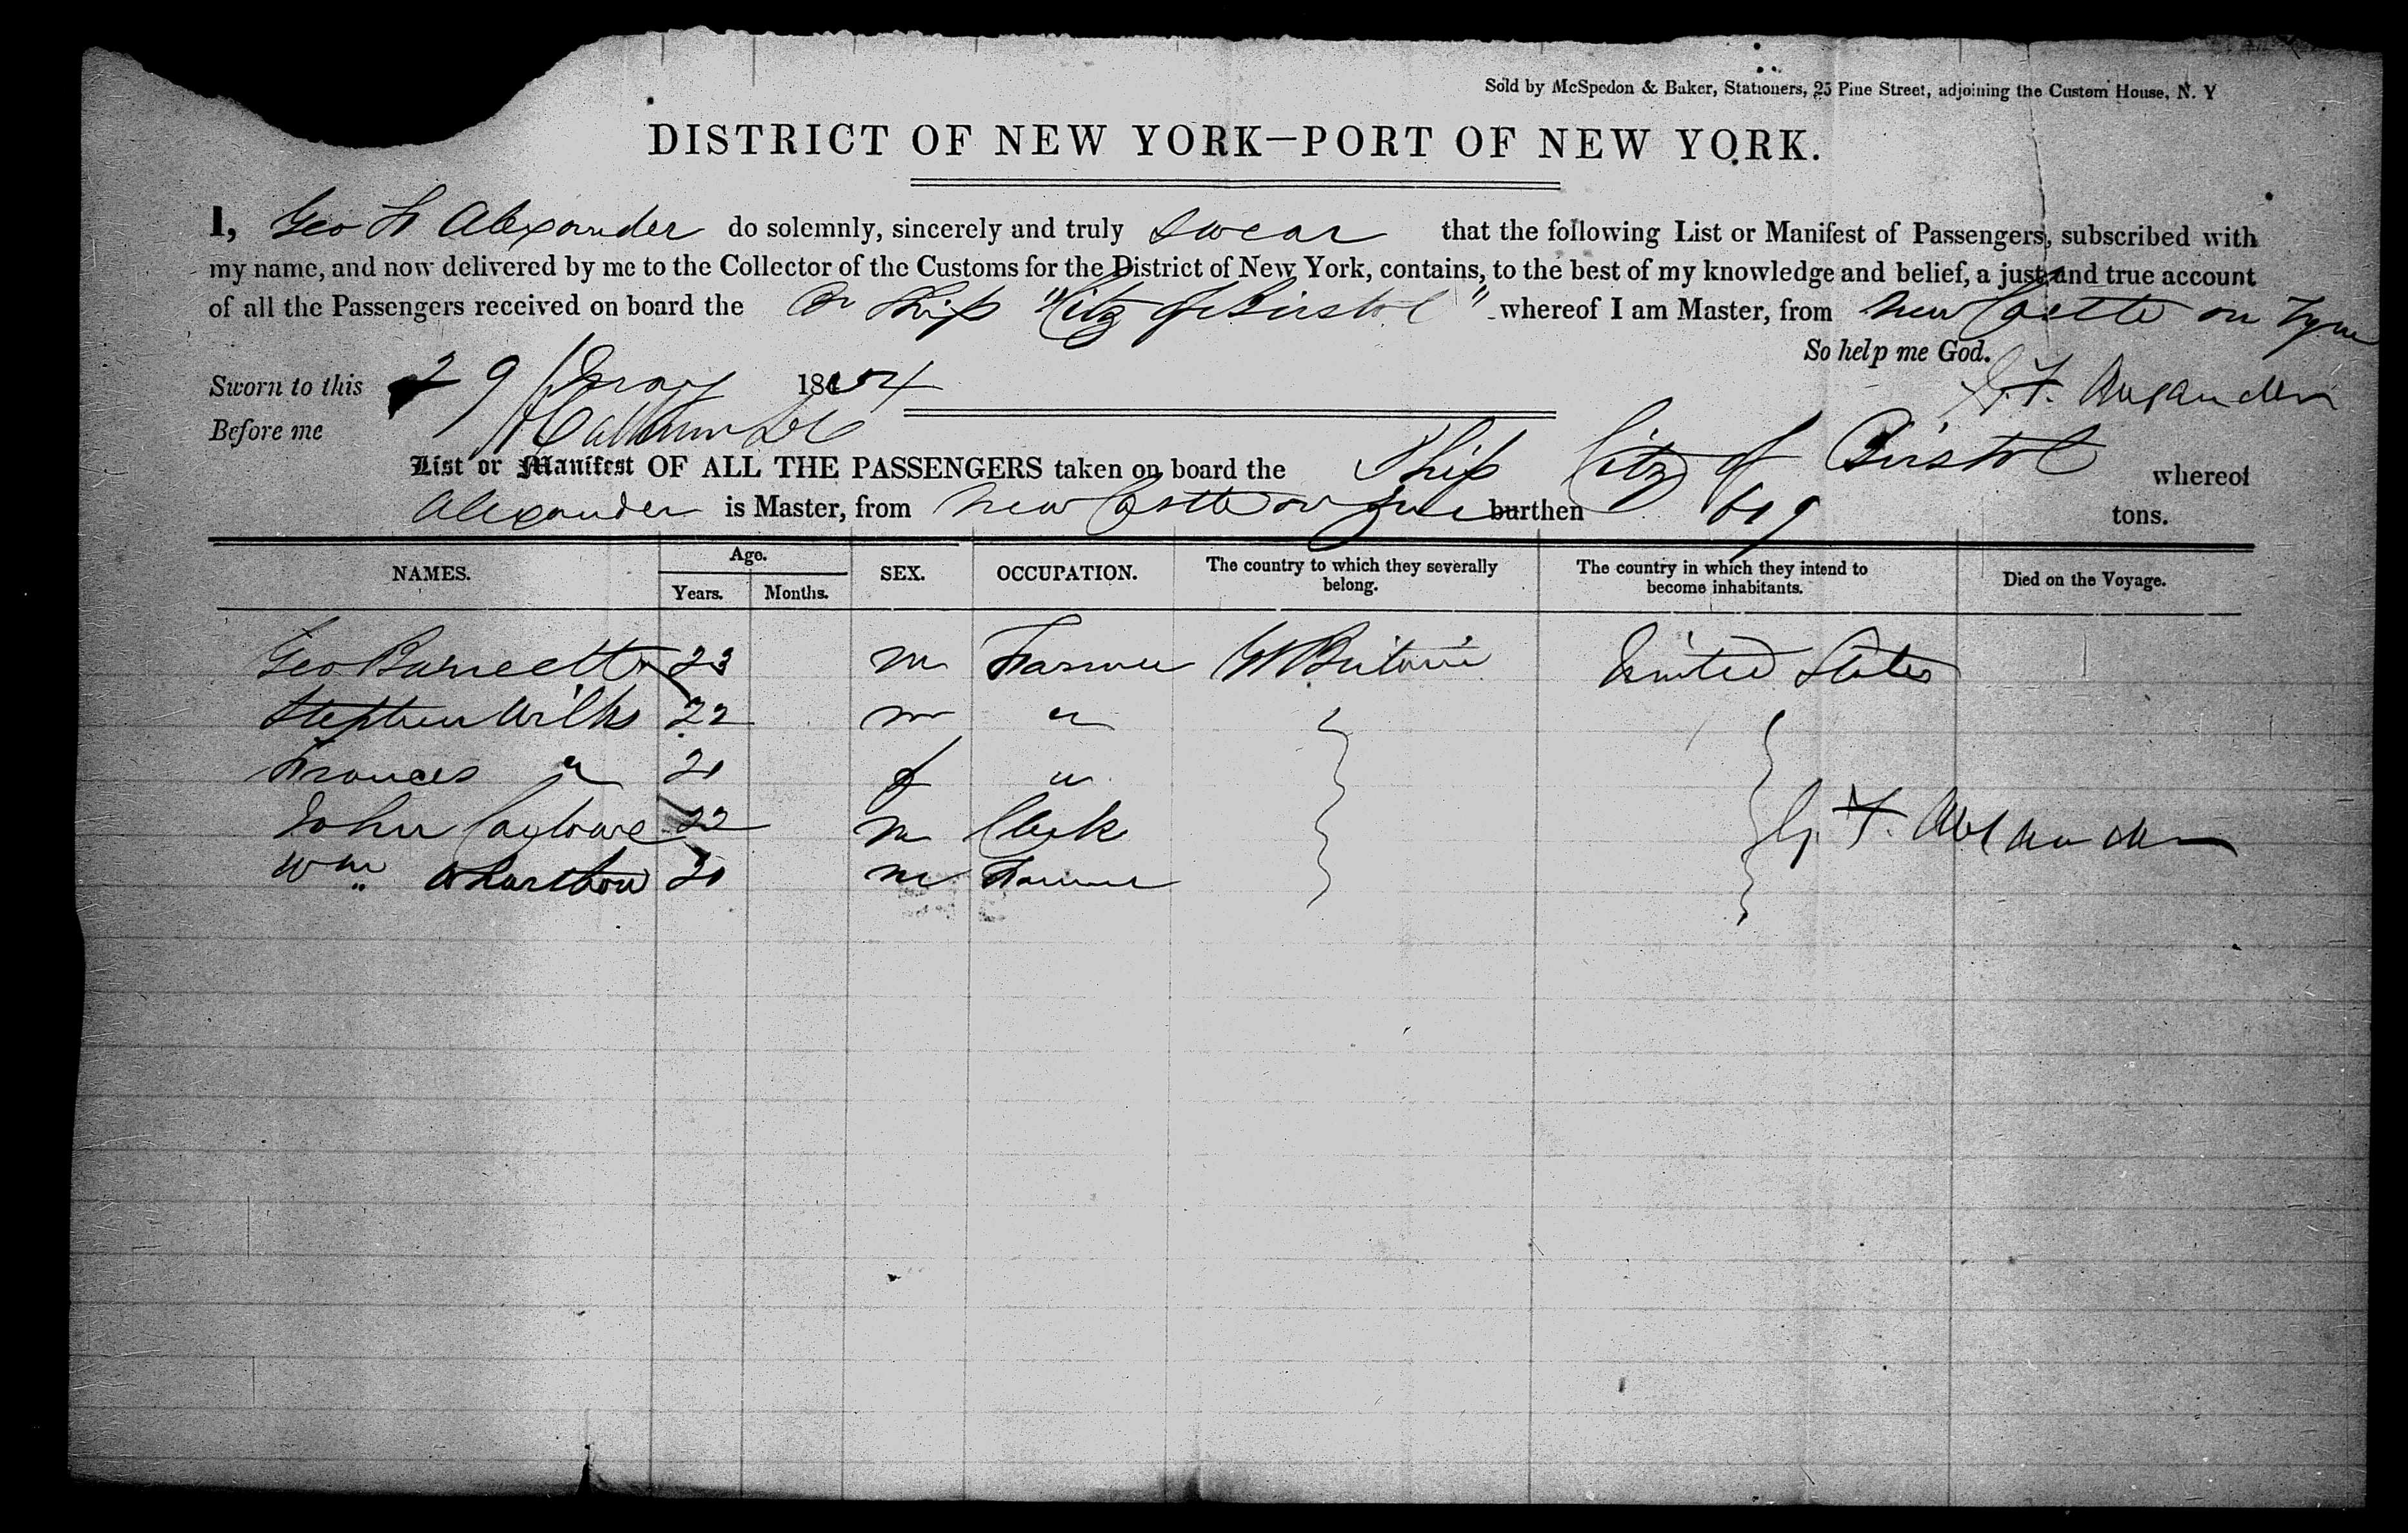 Sold by McSpedon & Baker, Stationers, 25 Pine Street, adjoining the Custom House, N. Y
DISTRICT OF NEW YORK—PORT OF NEW YORK.
I, Geo F Alexander do solemnly, sincerely and truly swear that the following List or Manifest of Passengers, subscribed with
my name, and now delivered by me to the Collector of the Customs for the District of New York, contains, to the best of my knowledge and belief, a just and true account
of all the Passengers received on board the Br Ship "City of Bristol" whereof I am Master, from New Castle on Tyne
So help me God.
Sworn to this 29 May 1854 G. F. Alexander
Before me
List or Manifest OF ALL THE PASSENGERS taken on board the Ship City of Bristol whereof
Alexander is Master, from New Castle on Tyne burthen 619 tons.
NAMES. Age. Years. Months. SEX. OCCUPATION. The country to which they severally belong. The country in which they intend to become inhabitants. Died on the Voyage.
Geo Burnett 23 m Farmer Gt Britain United States
Stephen Wilks 22 m "
Frances " 21 f "
John 22 m Clerk G. F. Alexander
Wm Wharthon 20 m Farmer